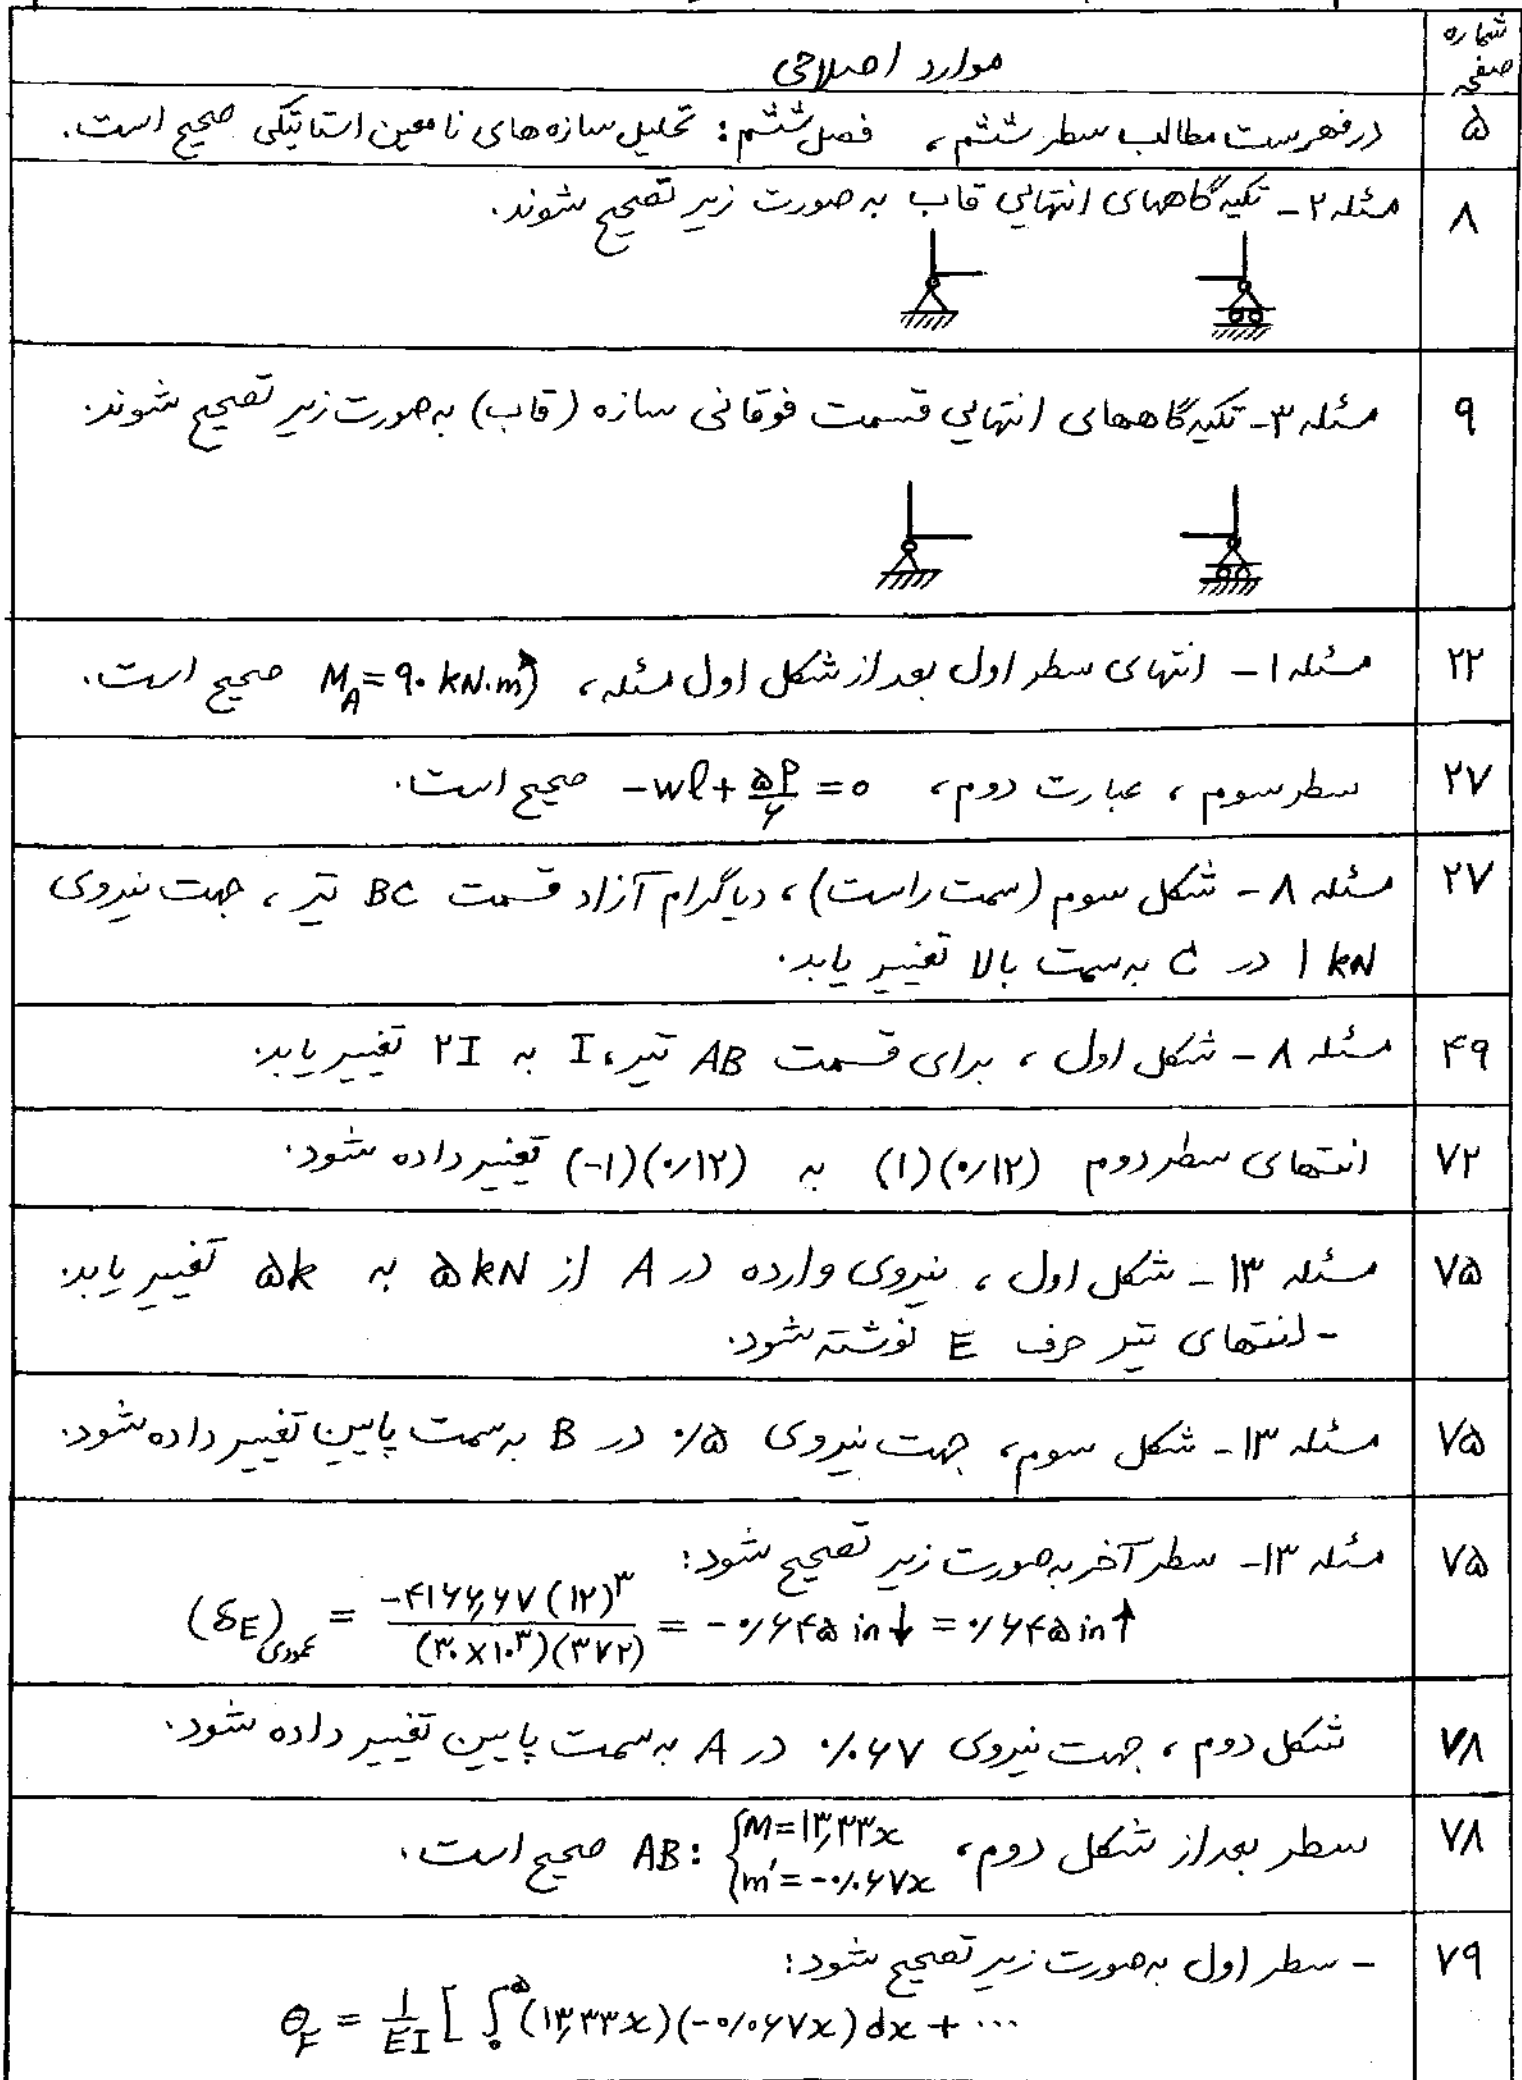 شماره صفحه
موارد اصلاحی
۵ در فهرست مطالب سطر ششم، فصل ششم: تحلیل سازه های نامعین استاتیکی صحیح است.
۸ مسئله ۲ - تکیه گاههای انتهایی قاب به صورت زیر تصحیح شوند.
۹ مسئله ۳ - تکیه گاههای انتهایی قسمت فوقانی سازه (قاب) به صورت زیر تصحیح شوند.
۲۲ مسئله ۱ - انتهای سطر اول بعد از شکل اول مسئله، M_A = ۹۰ kN.m صحیح است.
۲۷ سطر سوم، عبارت دوم، -wl + ۵P/۶ = ۰ صحیح است.
۲۷ مسئله ۸ - شکل سوم (سمت راست)، دیاگرام آزاد قسمت BC تیر، جهت نیروی
۱ kN در C به سمت بالا تغییر یابد.
۴۹ مسئله ۸ - شکل اول، برای قسمت AB تیر، I به ۲I تغییر یابد.
۷۲ انتهای سطر دوم (۰/۱۲)(۱) به (۰/۱۲)(-۱) تغییر داده شود.
۷۵ مسئله ۱۳ - شکل اول، نیروی وارده در A از ۵kN به ۵k تغییر یابد.
- انتهای تیر حرف E نوشته شود.
۷۵ مسئله ۱۳ - شکل سوم، جهت نیروی ۰/۵ در B به سمت پایین تغییر داده شود.
۷۵ مسئله ۱۳ - سطر آخر به صورت زیر تصحیح شود:
(δE)عمودی = -۴۱۶۶,۶۷(۱۲)^۳ / (۳۰×۱۰^۳)(۳۷۲) = -۰/۶۴۵ in↓ = ۰/۶۴۵ in↑
۷۸ شکل دوم، جهت نیروی ۰/۰۶۷ در A به سمت پایین تغییر داده شود.
۷۸ سطر بعد از شکل دوم، AB: { M=۱۳,۳۳x m'=-۰/۰۶۷x صحیح است.
۷۹ - سطر اول به صورت زیر تصحیح شود:
θ_F = ۱/EI [ ∫₀^۵ (۱۳,۳۳x)(-۰/۰۶۷x)dx + ...